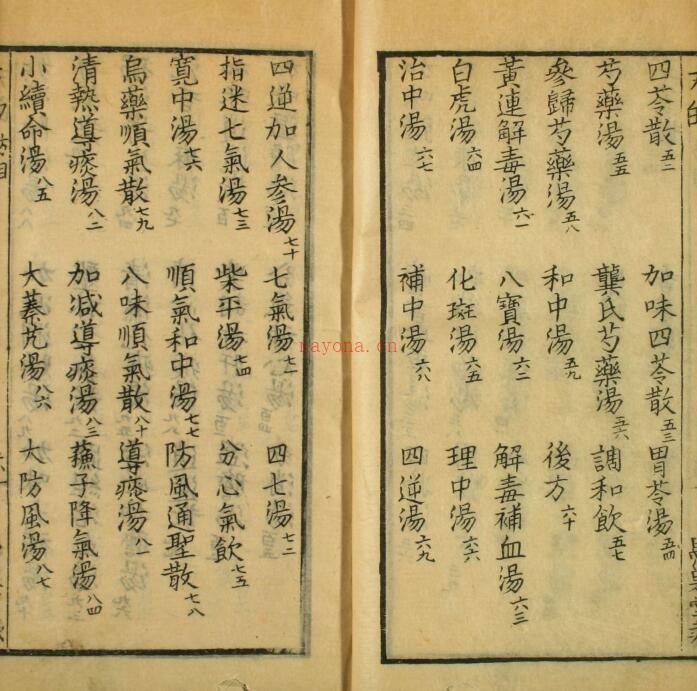 四苓散五二 加味四苓散五三 胃苓湯五四
芍藥湯五五 龔氏芍藥湯五六 調和飲五七
參歸芍藥湯五八 和中湯五九 後方六十
黃連解毒湯六一 八寶湯六二 解毒補血湯六三
白虎湯六四 化斑湯六五 理中湯六六
治中湯六七 補中湯六八 四逆湯六九
四逆加人參湯七十 七氣湯七一 四七湯七二
指迷七氣湯七三 柴平湯七四 分心氣飲七五
寬中湯七六 順氣和中湯七七 防風通聖散七八
烏藥順氣散七九 八味順氣散八十 導痰湯八一
清熱導痰湯八二 加减導痰湯八三 蘓子降氣湯八四
小續命湯八五 大蓁艽湯八六 大防風湯八七
rayona.cn